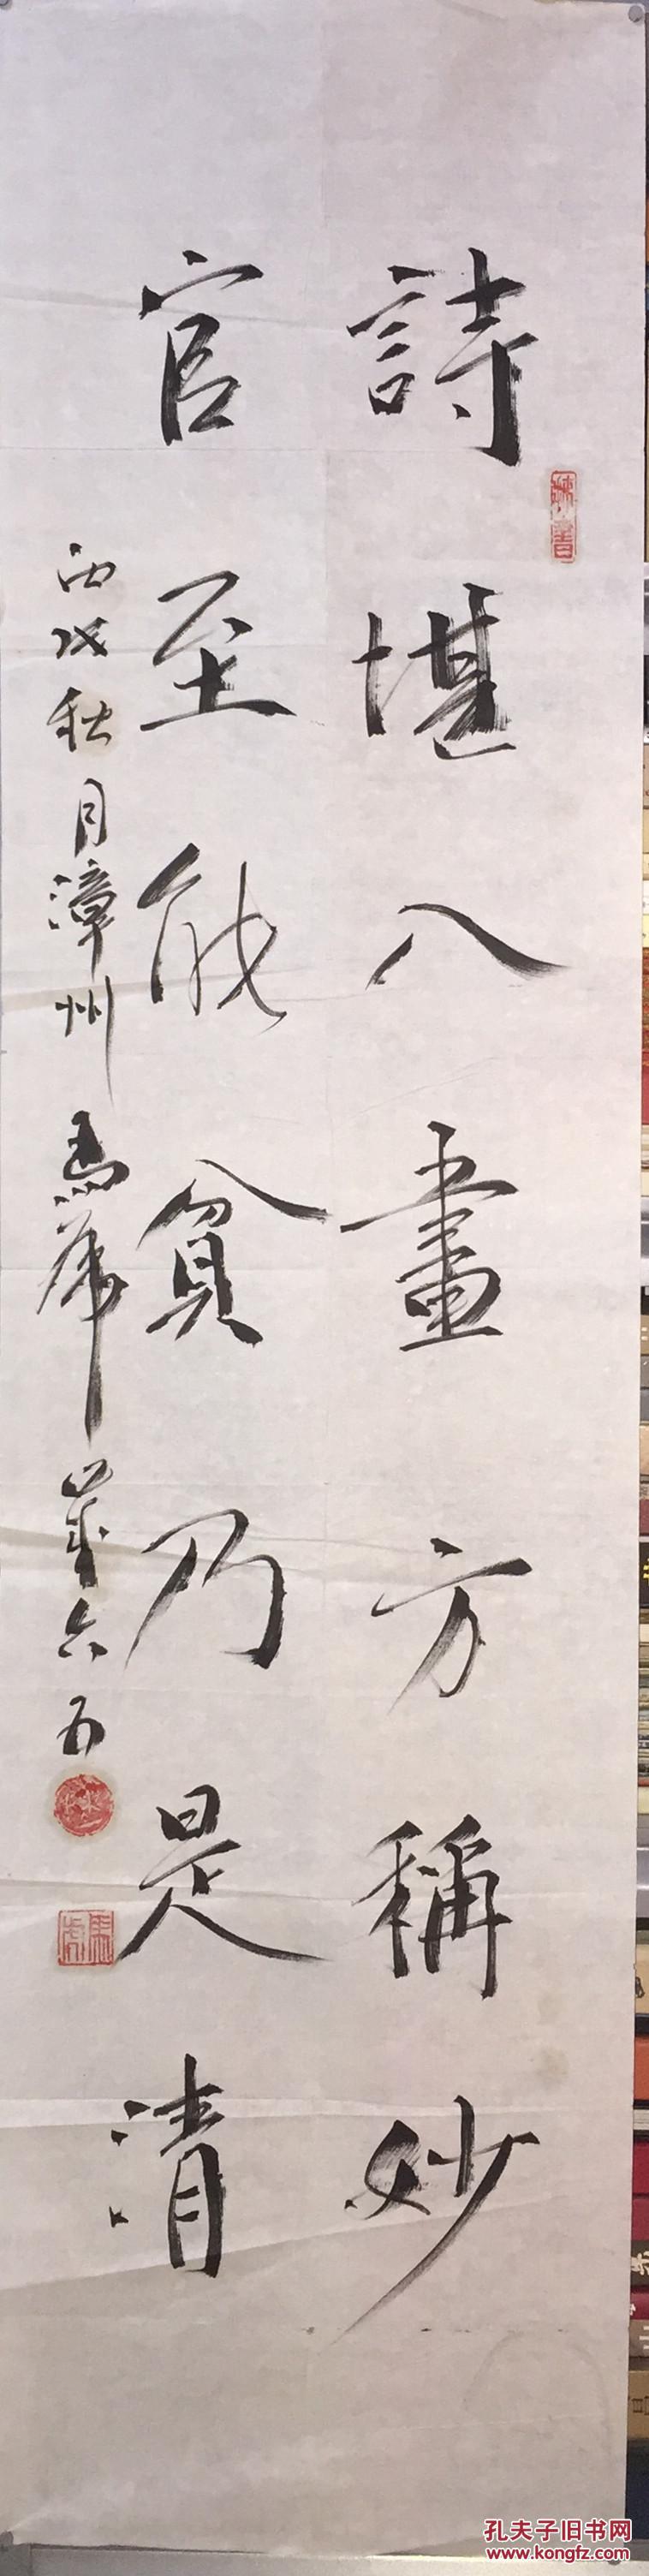 詩堪入畫方稱妙
官至能貧乃是清
丙戌秋月漳州馬虎葉六五
馬虎
孔夫子旧书网
www.kongfz.com